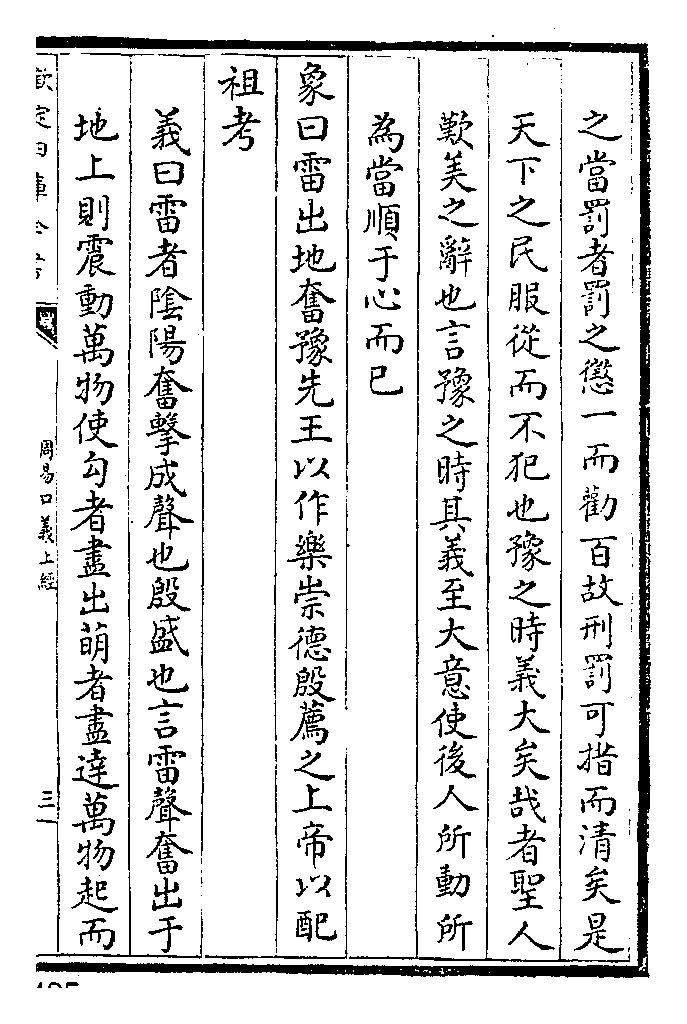 之當罰者罰之懲一而勸百故刑罰可措而清矣是
天下之民服從而不犯也豫之時義大矣哉者聖人
歎美之辭也言豫之時其義至大意使後人所動所
為當順于心而已
象曰雷出地奮豫先王以作樂崇德殷薦之上帝以配
祖考
義曰雷者陰陽奮擊成聲也殷盛也言雷聲奮出于
地上則震動萬物使勾者盡出萌者盡達萬物起而
周易口義上經